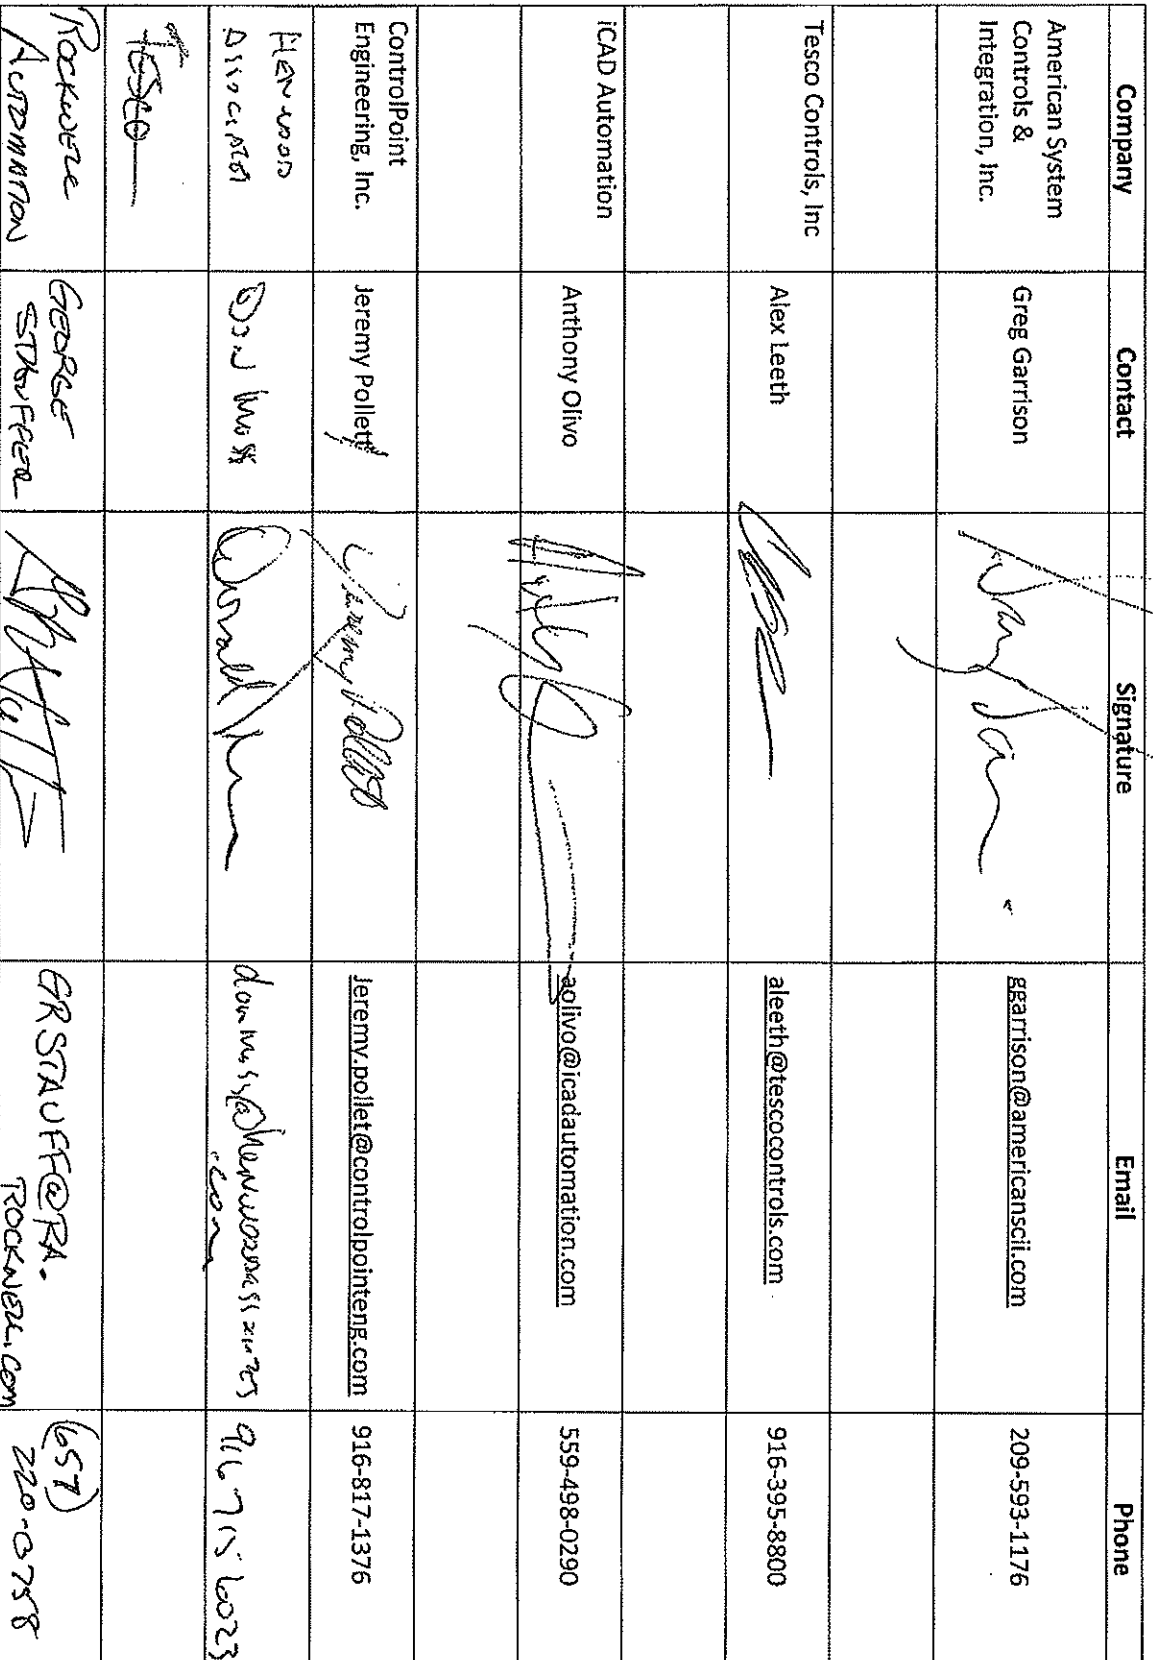 Company Contact Signature Email Phone
American System
Controls &
Integration, Inc.
Greg Garrison
ggarrison@americanscii.com
209-593-1176
Tesco Controls, Inc
Alex Leeth
aleeth@tescocontrols.com
916-395-8800
iCAD Automation
Anthony Olivo
aolivo@icadautomation.com
559-498-0290
ControlPoint
Engineering, Inc.
Jeremy Pollett
Jeremy Pollett
jeremy.pollet@controlpointeng.com
916-817-1376
HENWOOD
Don
Donald
.com
916 715 6023
TESCO
ROCKWELL
AUTOMATION
GEORGE
STAUFFER
GRSTAUFF@RA.
ROCKWELL.COM
(657)
220-0758